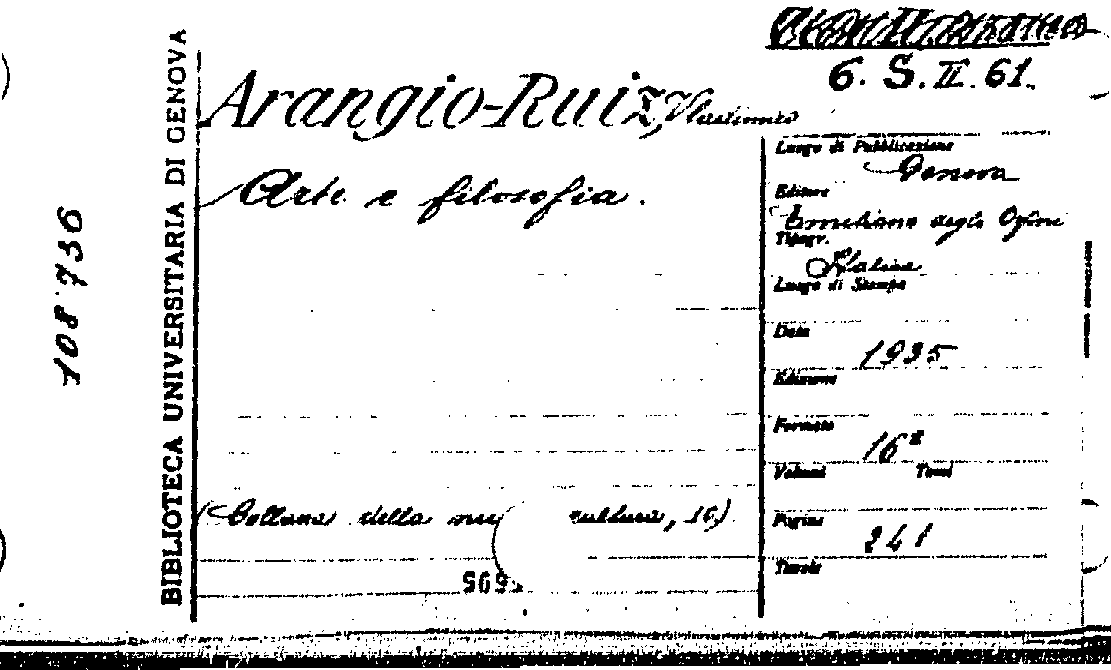 6. S. II. 61.
Arangio-Ruiz, Vladimiro
Arte e filosofia.
108736
BIBLIOTECA UNIVERSITARIA DI GENOVA
Luogo di Pubblicazione
Genova
Editore
Emiliano degli Orfini
Tipogr.
Italia
Luogo di Stampa
Data
1935
Edizione
Formato
16º
Volumi Tomi
Pagine
241
Tavole
(Collana della cultura, 10)